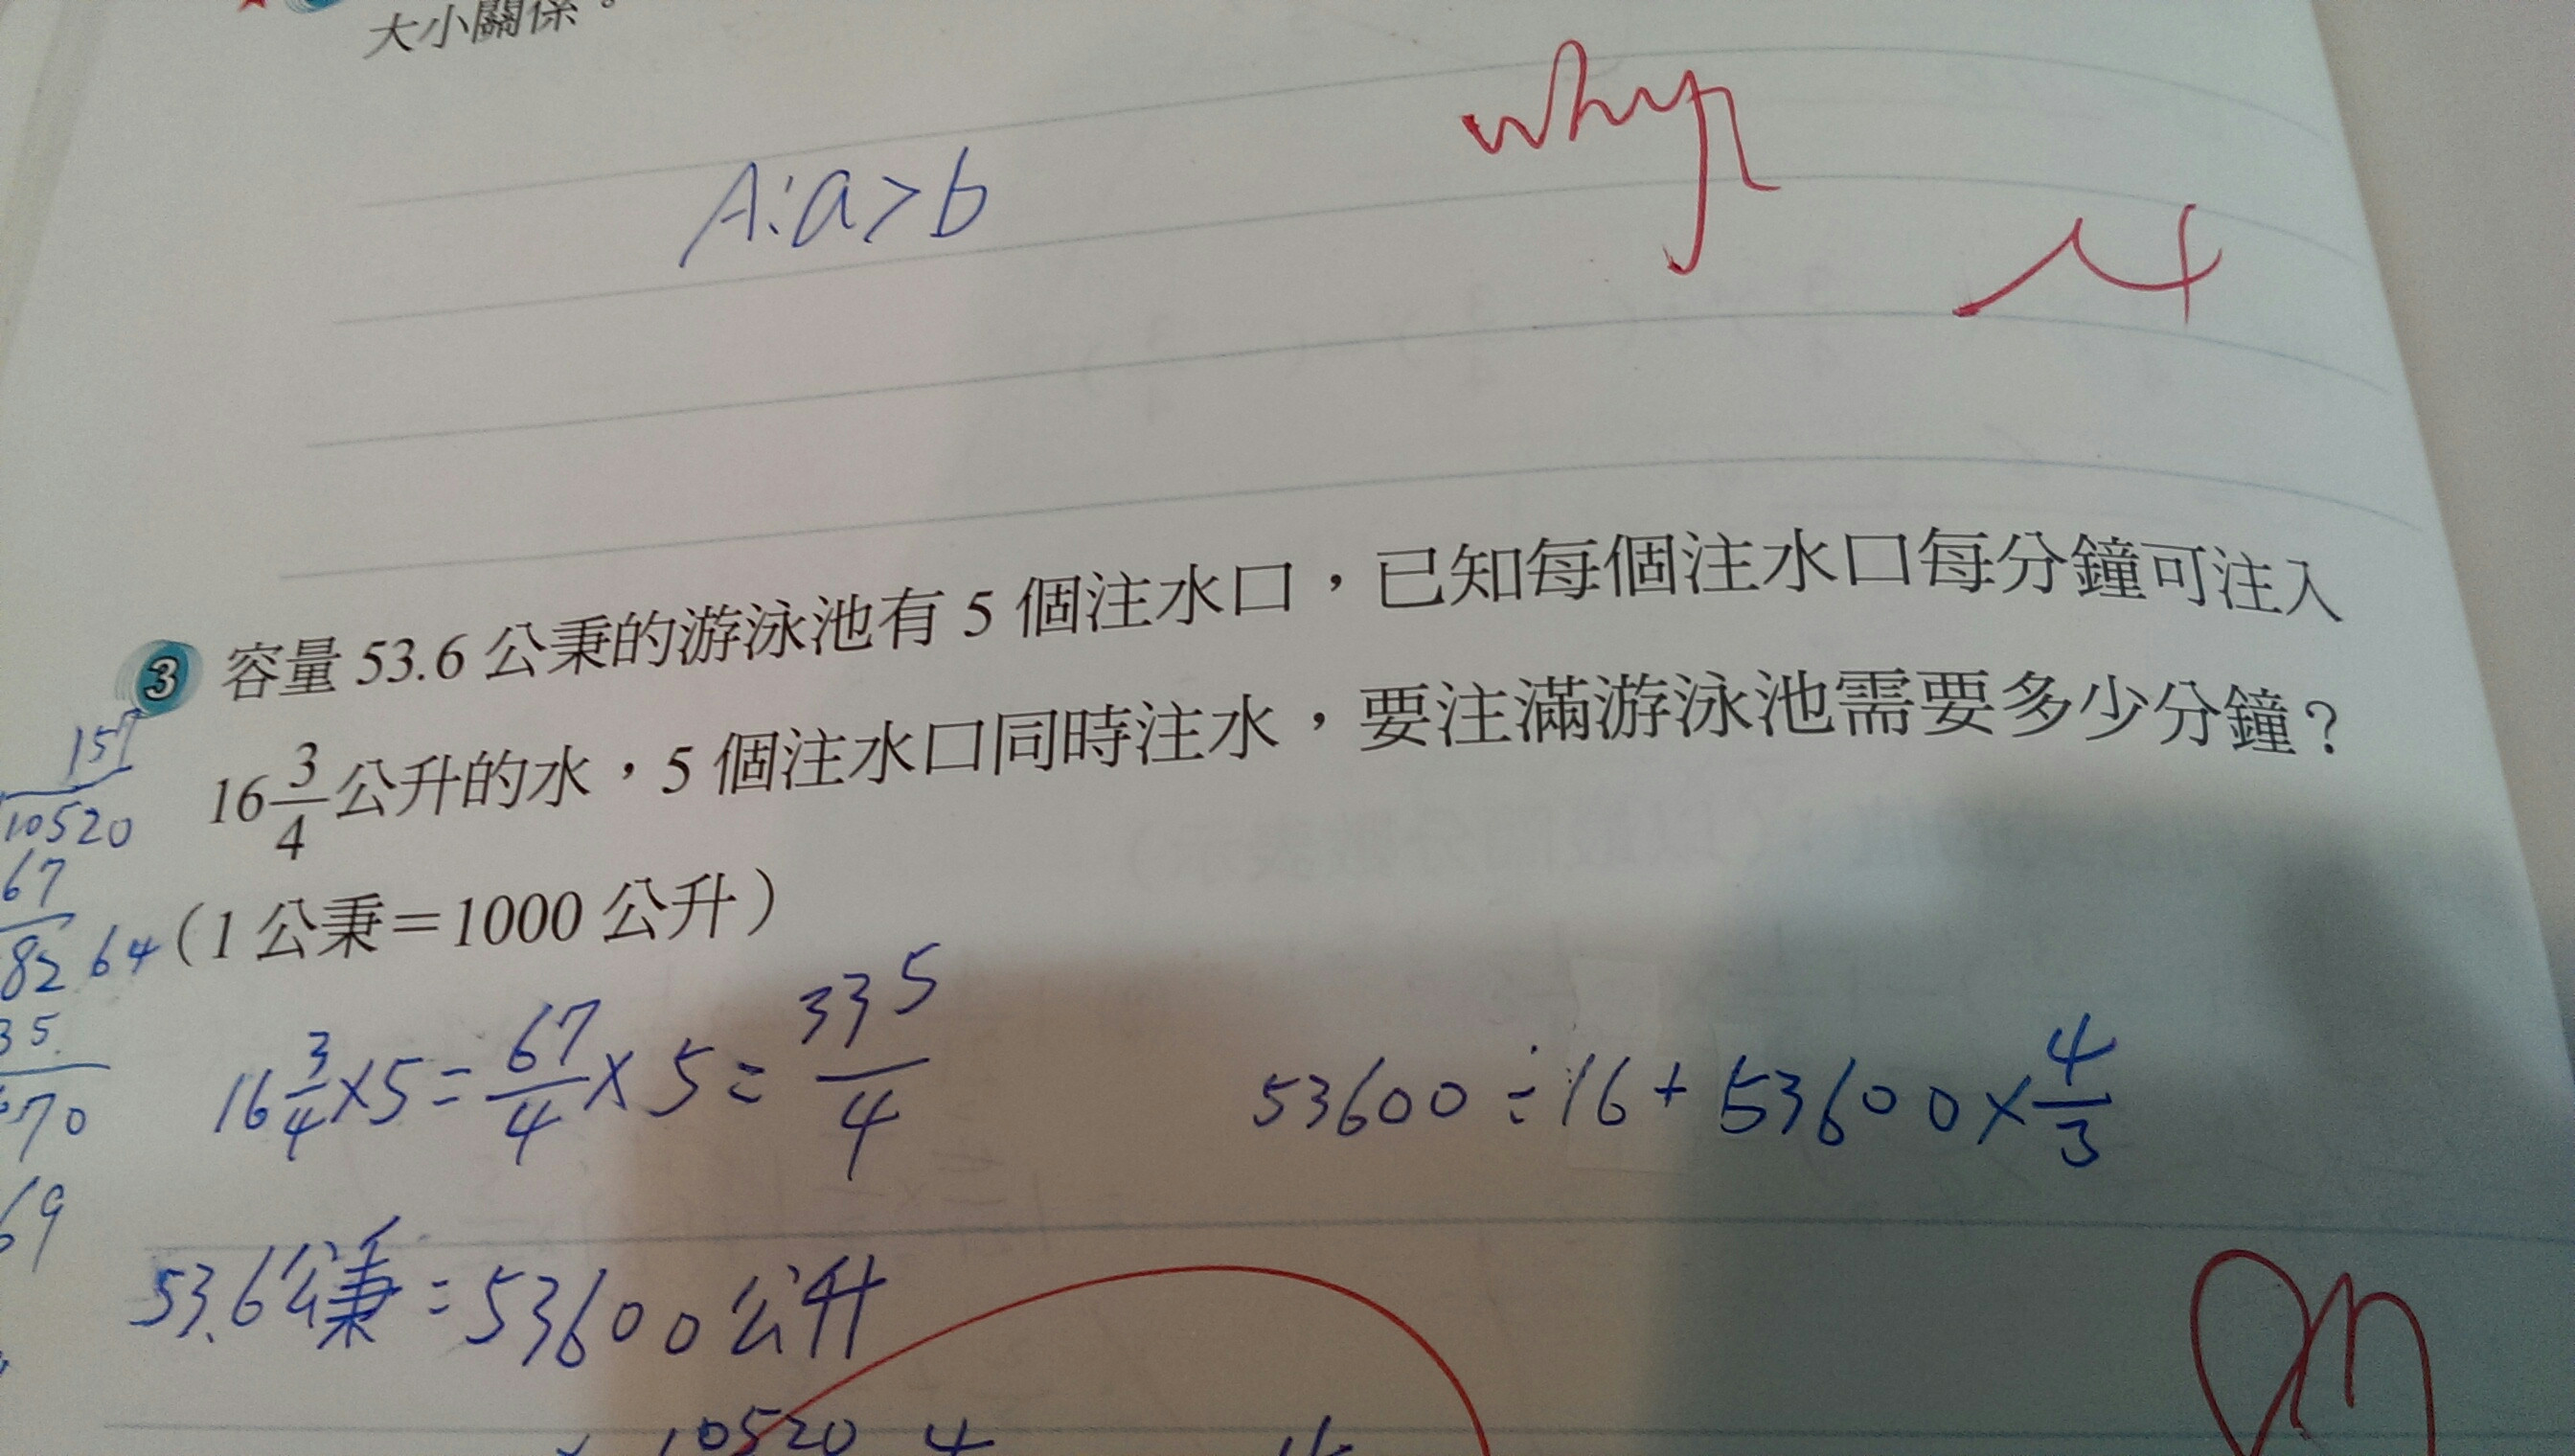 大小關係。
why
A:a>b
-4
3 容量 53.6 公秉的游泳池有 5 個注水口，已知每個注水口每分鐘可注入
16 3/4 公升的水，5 個注水口同時注水，要注滿游泳池需要多少分鐘？
(1 公秉=1000 公升)
157
10520
67
82 64
35
70
69
16 3/4 ×5= 67/4 × 5 = 335/4
53600 ÷16+ 53600× 4/3
53.6公秉=53600公升
10520 4